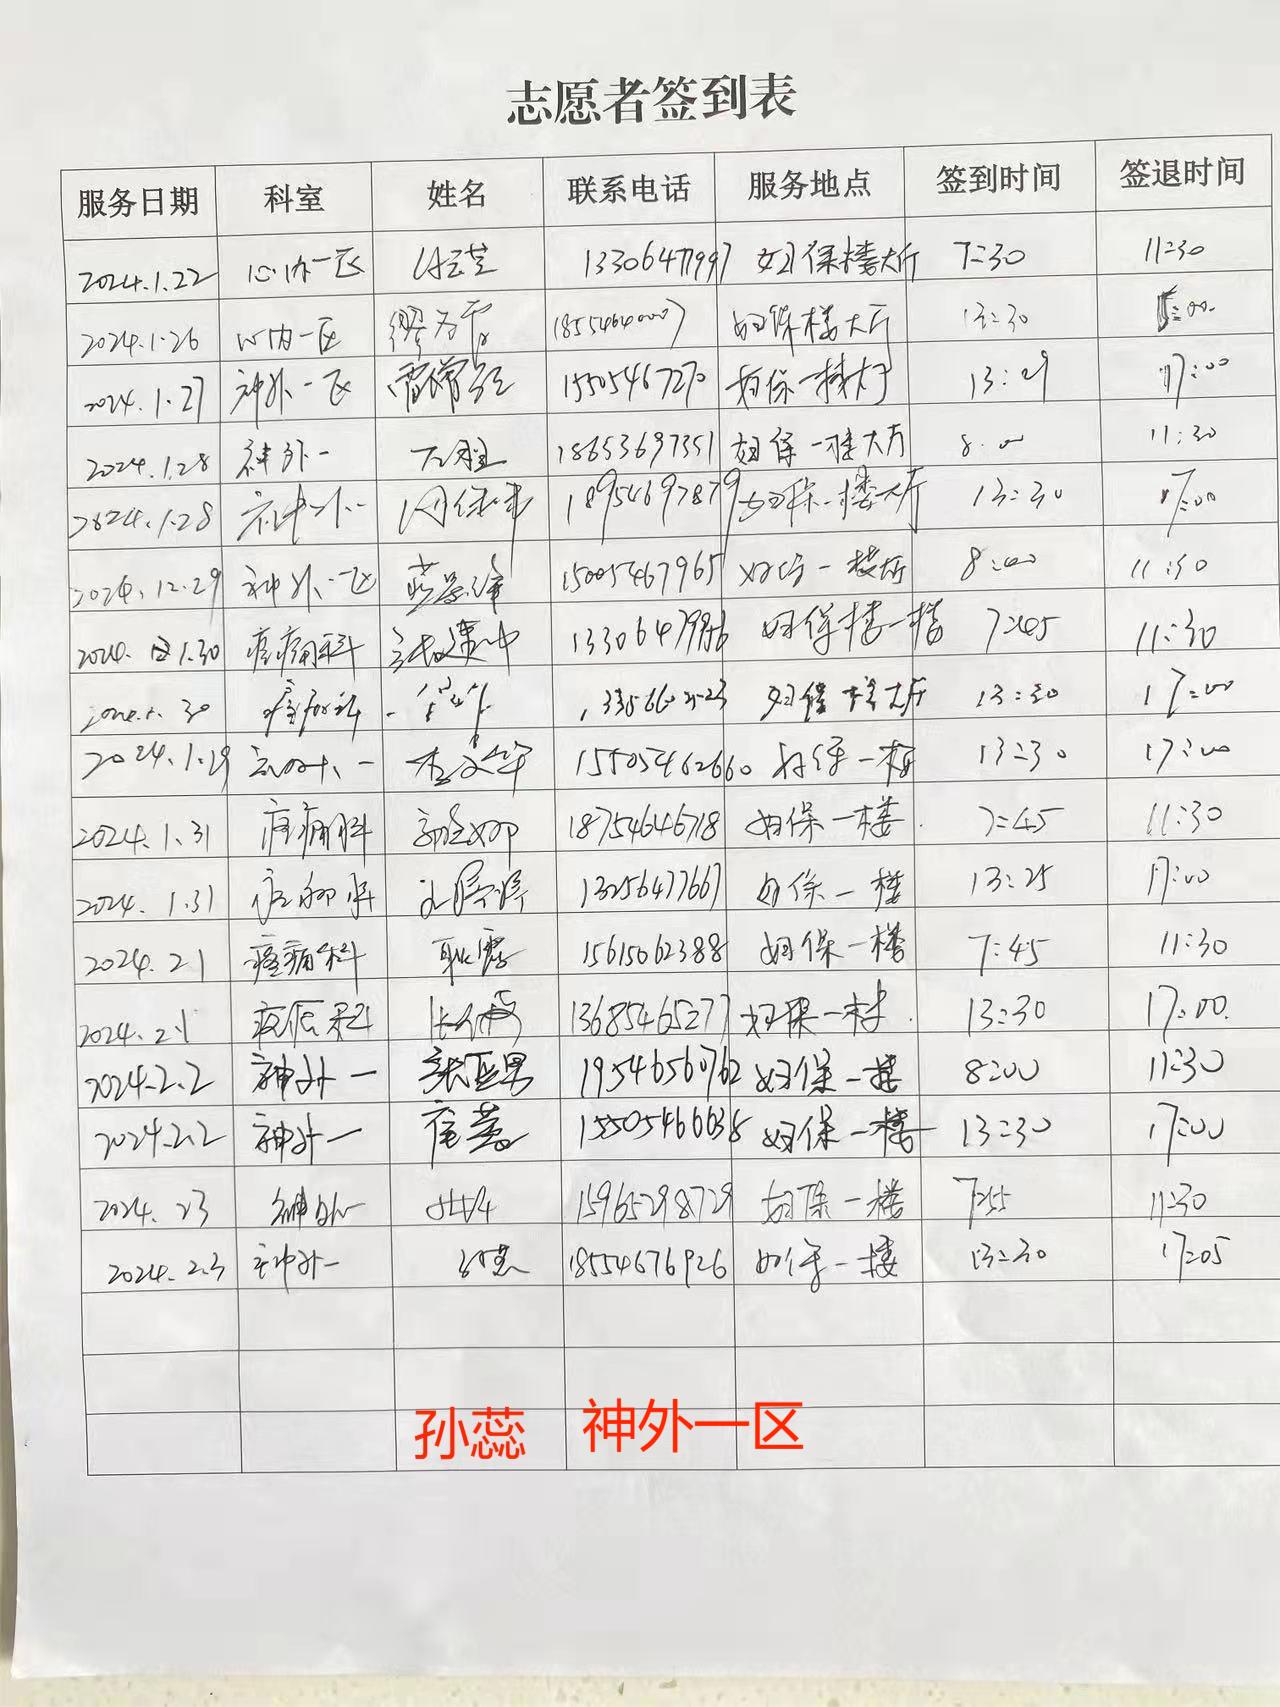 志愿者签到表
服务日期 科室 姓名 联系电话 服务地点 签到时间 签退时间
2024.1.22 心内一区 妇保楼大厅 7:30 11:30
2024.1.26 心内一区 妇保楼大厅 13:30
2024.1.27 神外一区 15505467270 妇保一楼大厅 13:29 17:00
2024.1.28 神外一 18653697351 妇保一楼大厅 8:00 11:30
2024.1.28 神外一 18954697879 妇保一楼大厅 13:30 17:00
2024.12.29 神外一区 15005467965 妇保一楼大厅 8:00 11:30
2024. 1.30 疼痛科 妇保楼一楼 7:45 11:30
30 妇保一楼大厅 13:30 17:00
2024.1.29 神外一 杜文华 15505462660 妇保一楼 13:30 17:00
2024.1.31 疼痛科 18754646718 妇保一楼 7:45 11:30
2024.1.31 疼痛科 13256477667 妇保一楼 13:25 17:00
2024.2.1 疼痛科 耿露 15615062388 妇保一楼 7:45 11:30
2024.2.1 13685465277 妇保一楼 13:30 17:00
2024.2.2 神外一 张亚男 19546560762 妇保一楼 8:00 11:30
2024.2.2 神外一 15505466638 妇保一楼 13:30 17:00
2024.2.3 神外一 15965298729 妇保一楼 7:55 11:30
2024.2.3 神外一 18554676926 妇保一楼 13:30 17:05
孙蕊 神外一区